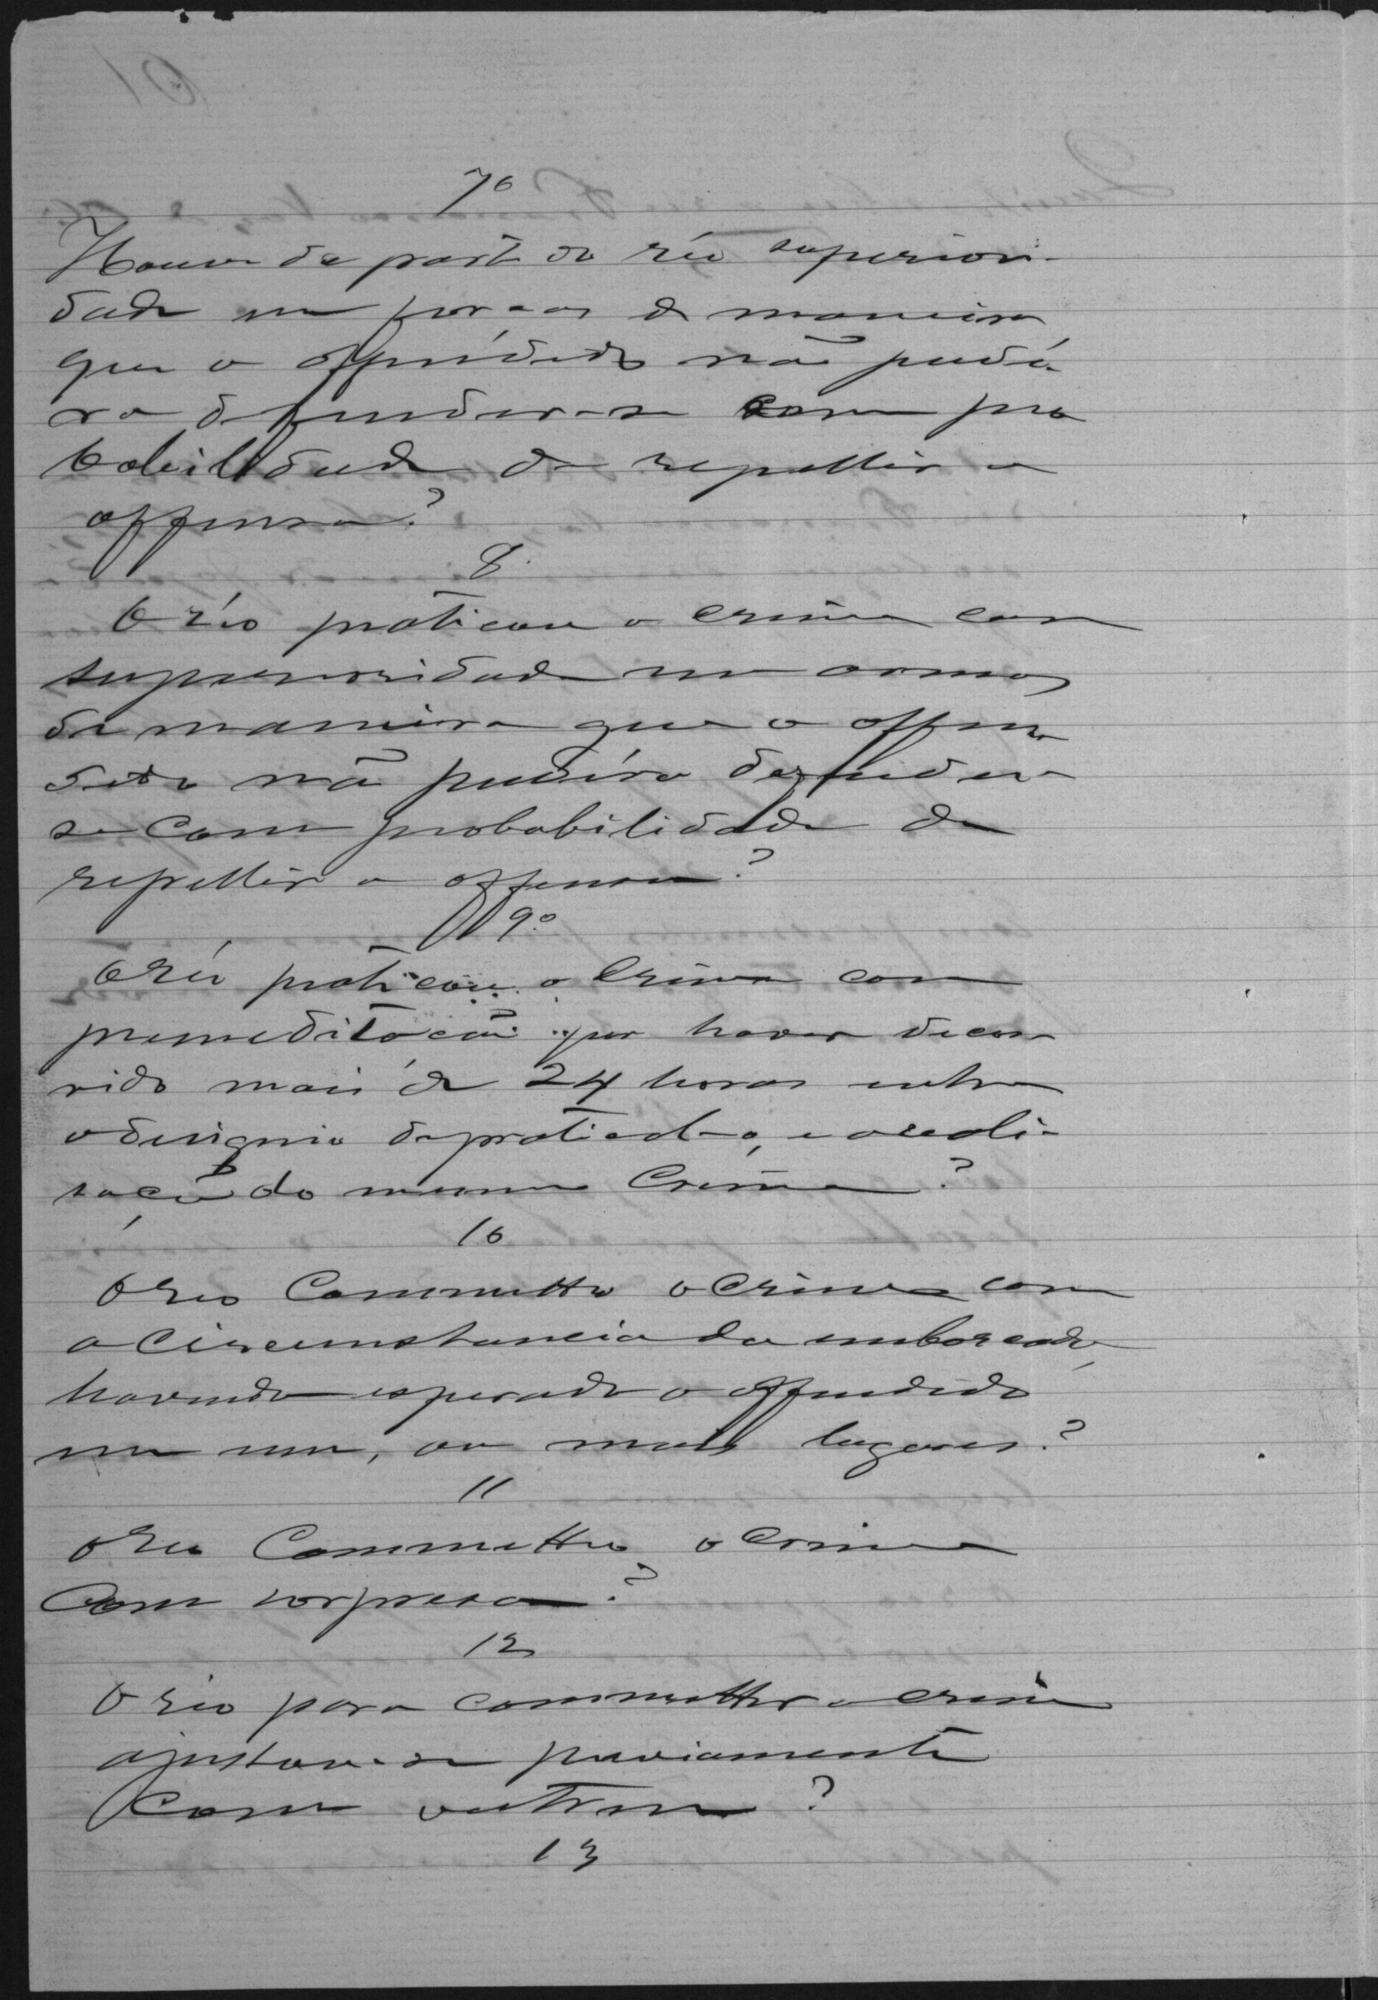 7º
Houve da parte do réo superiori-
dade em forças de maneira
que o offendido não podé-
ra defender-se com pro
babilidade de repellir a
offensa?
8.
O réo praticou o crime com
superioridade em armas
de maneira que o offen
dido não pudéra defender-
se com probabilidade de
repellir a offensa?
9º
O réu praticou o crime com
premeditação por haver decor-
rido mais de 24 horas entre
o designio de pratical-o, e a reali-
sação do mesmo Crime?
10
O reo Commetteu o crime com
a circumstancia da emboscada,
havendo esperado o offendido
em um, ou mais lugares?
11
O reu Commetteu o crime
Com sorpresa?
12
O réo para commetter o crime
ajustou-se previamente
com outrem?
13